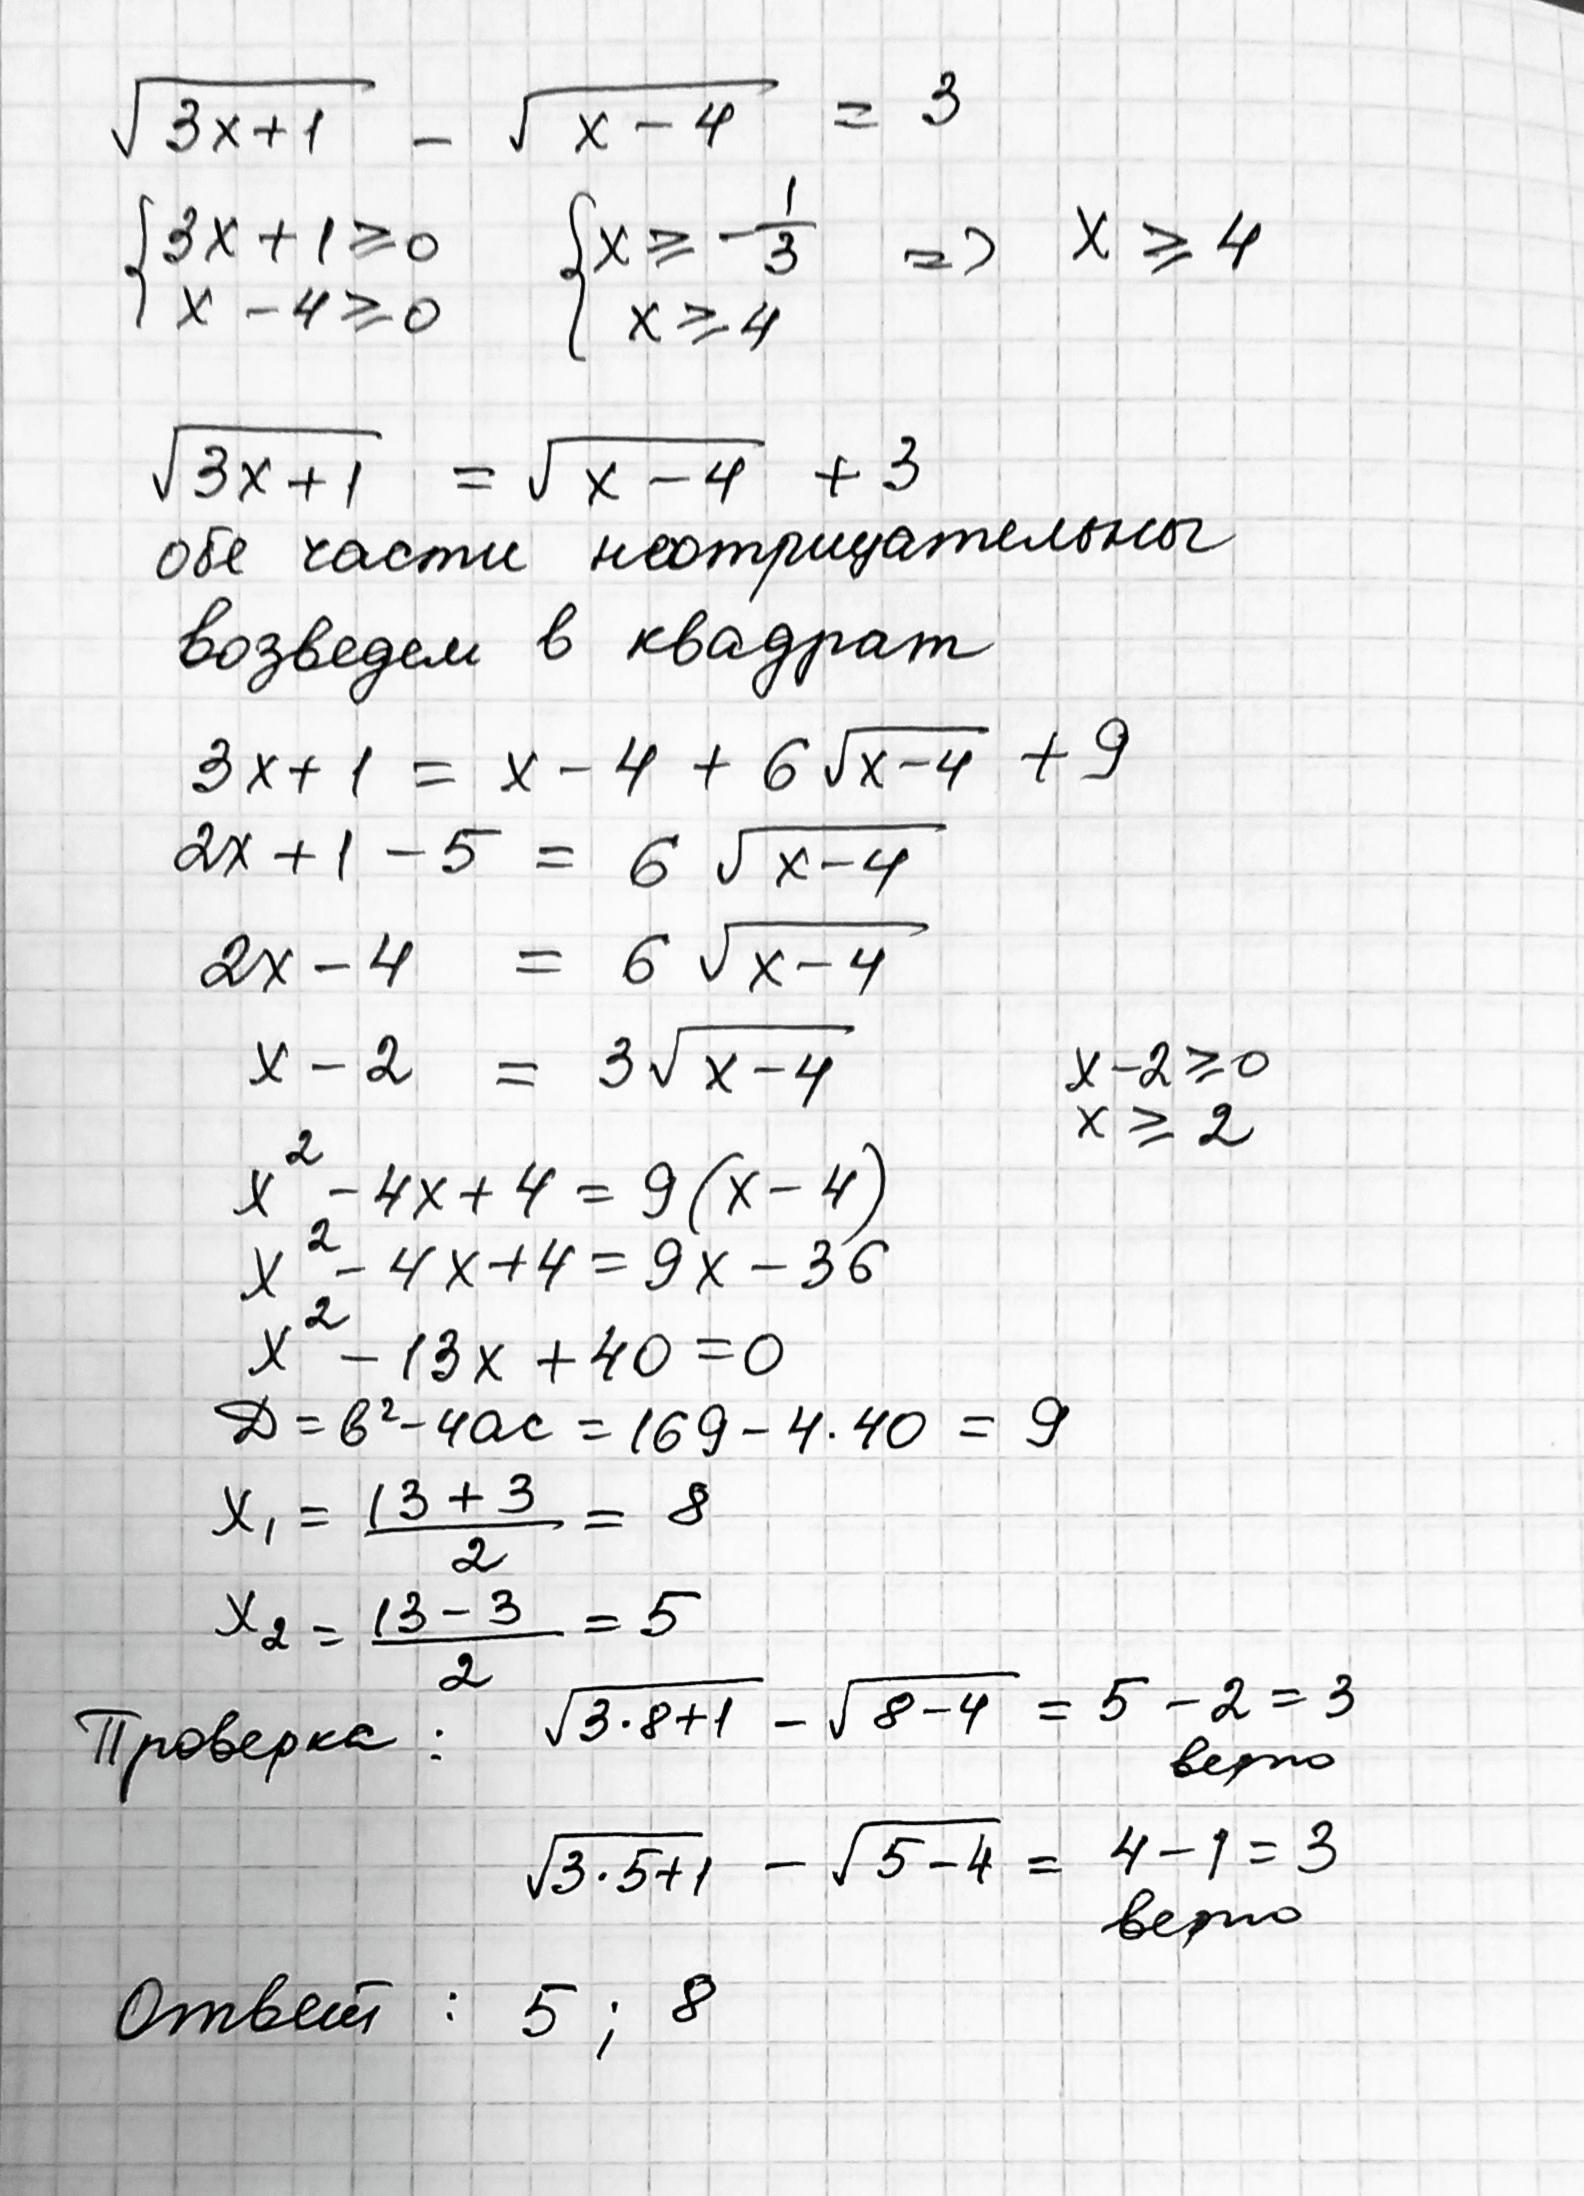 √(3x+1) − √(x−4) = 3
{3x+1≥0 {x≥−1/3 => x≥4
x−4≥0 x≥4
√(3x+1) = √(x−4) + 3
обе части неотрицательны
возведем в квадрат
3x+1 = x−4+6√(x−4) +9
2x+1−5 = 6√(x−4)
2x−4 = 6√(x−4)
x−2 = 3√(x−4) x−2≥0
x≥2
x²−4x+4=9(x−4)
x²−4x+4=9x−36
x²−13x+40=0
D=b²−4ac=169−4·40=9
x₁=(13+3)/2=8
x₂=(13−3)/2=5
Проверка: √(3·8+1) − √(8−4) = 5−2=3
верно
√(3·5+1) − √(5−4) = 4−1=3
верно
Ответ: 5; 8